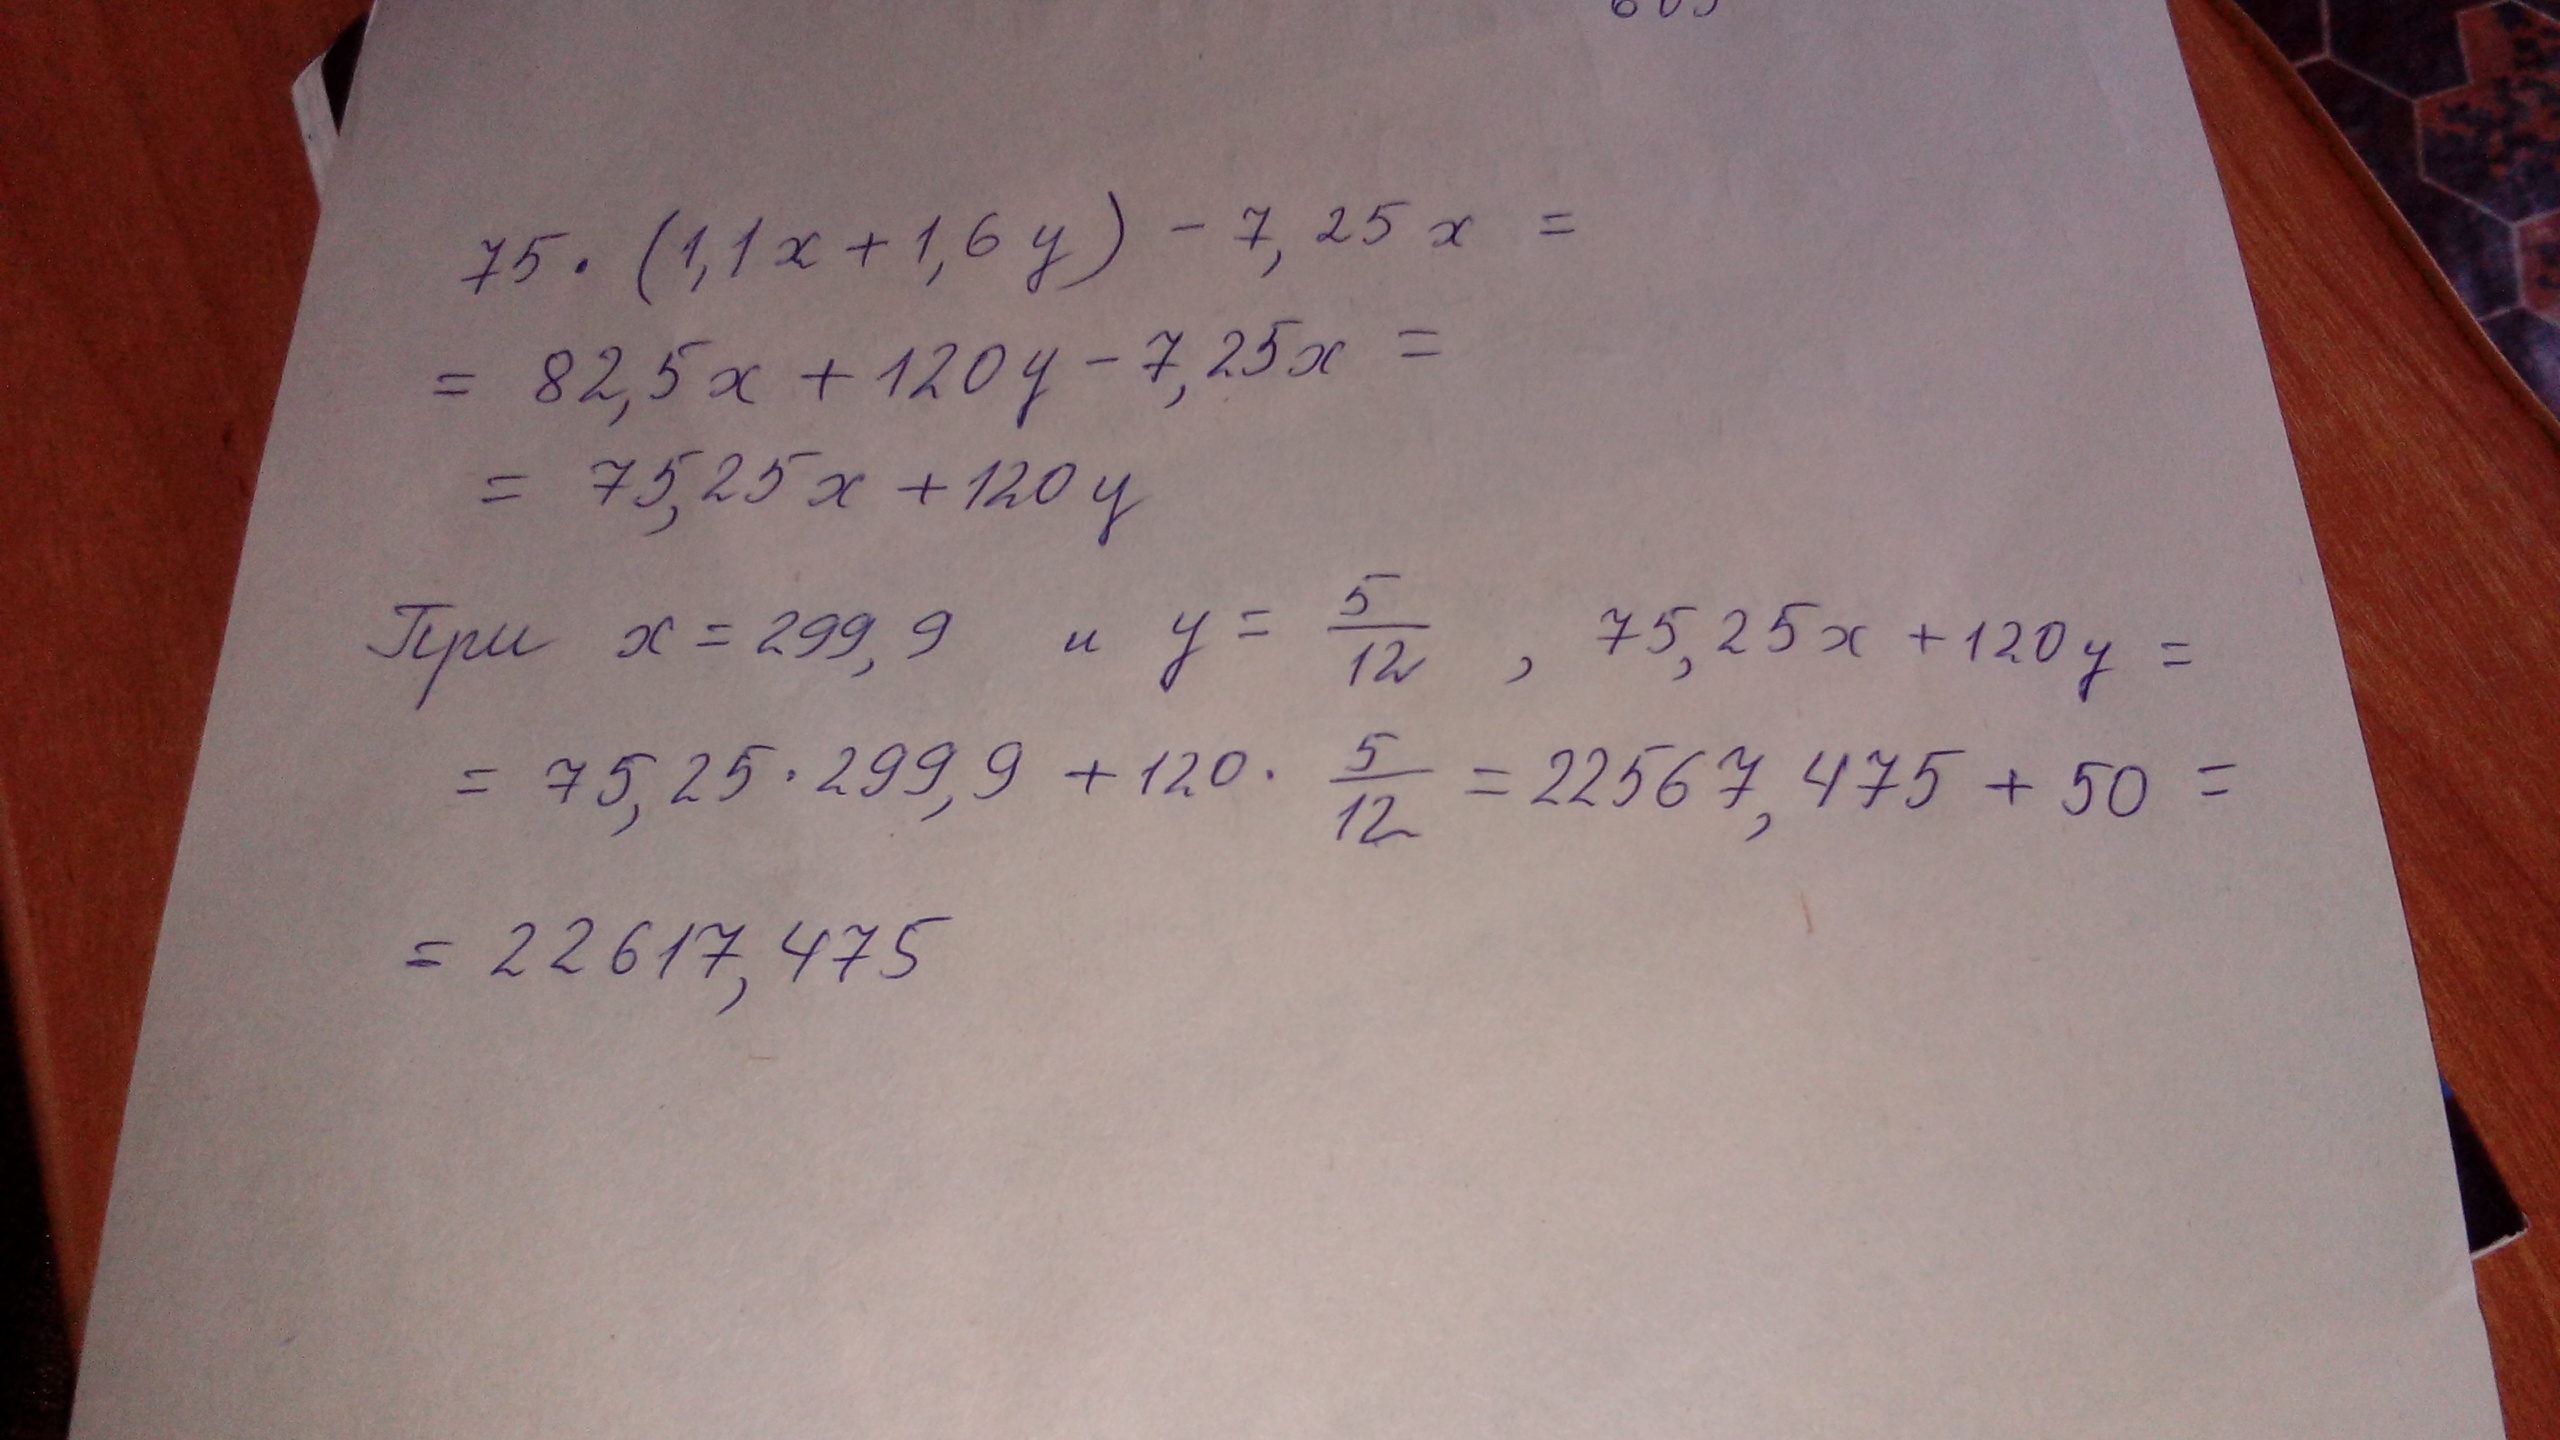 75 · (1,1x + 1,6y) - 7,25x =
= 82,5x + 120y - 7,25x =
= 75,25x + 120y
При x = 299,9 и y = 5/12 , 75,25x + 120y =
= 75,25 · 299,9 + 120 · 5/12 = 22567,475 + 50 =
= 22617,475